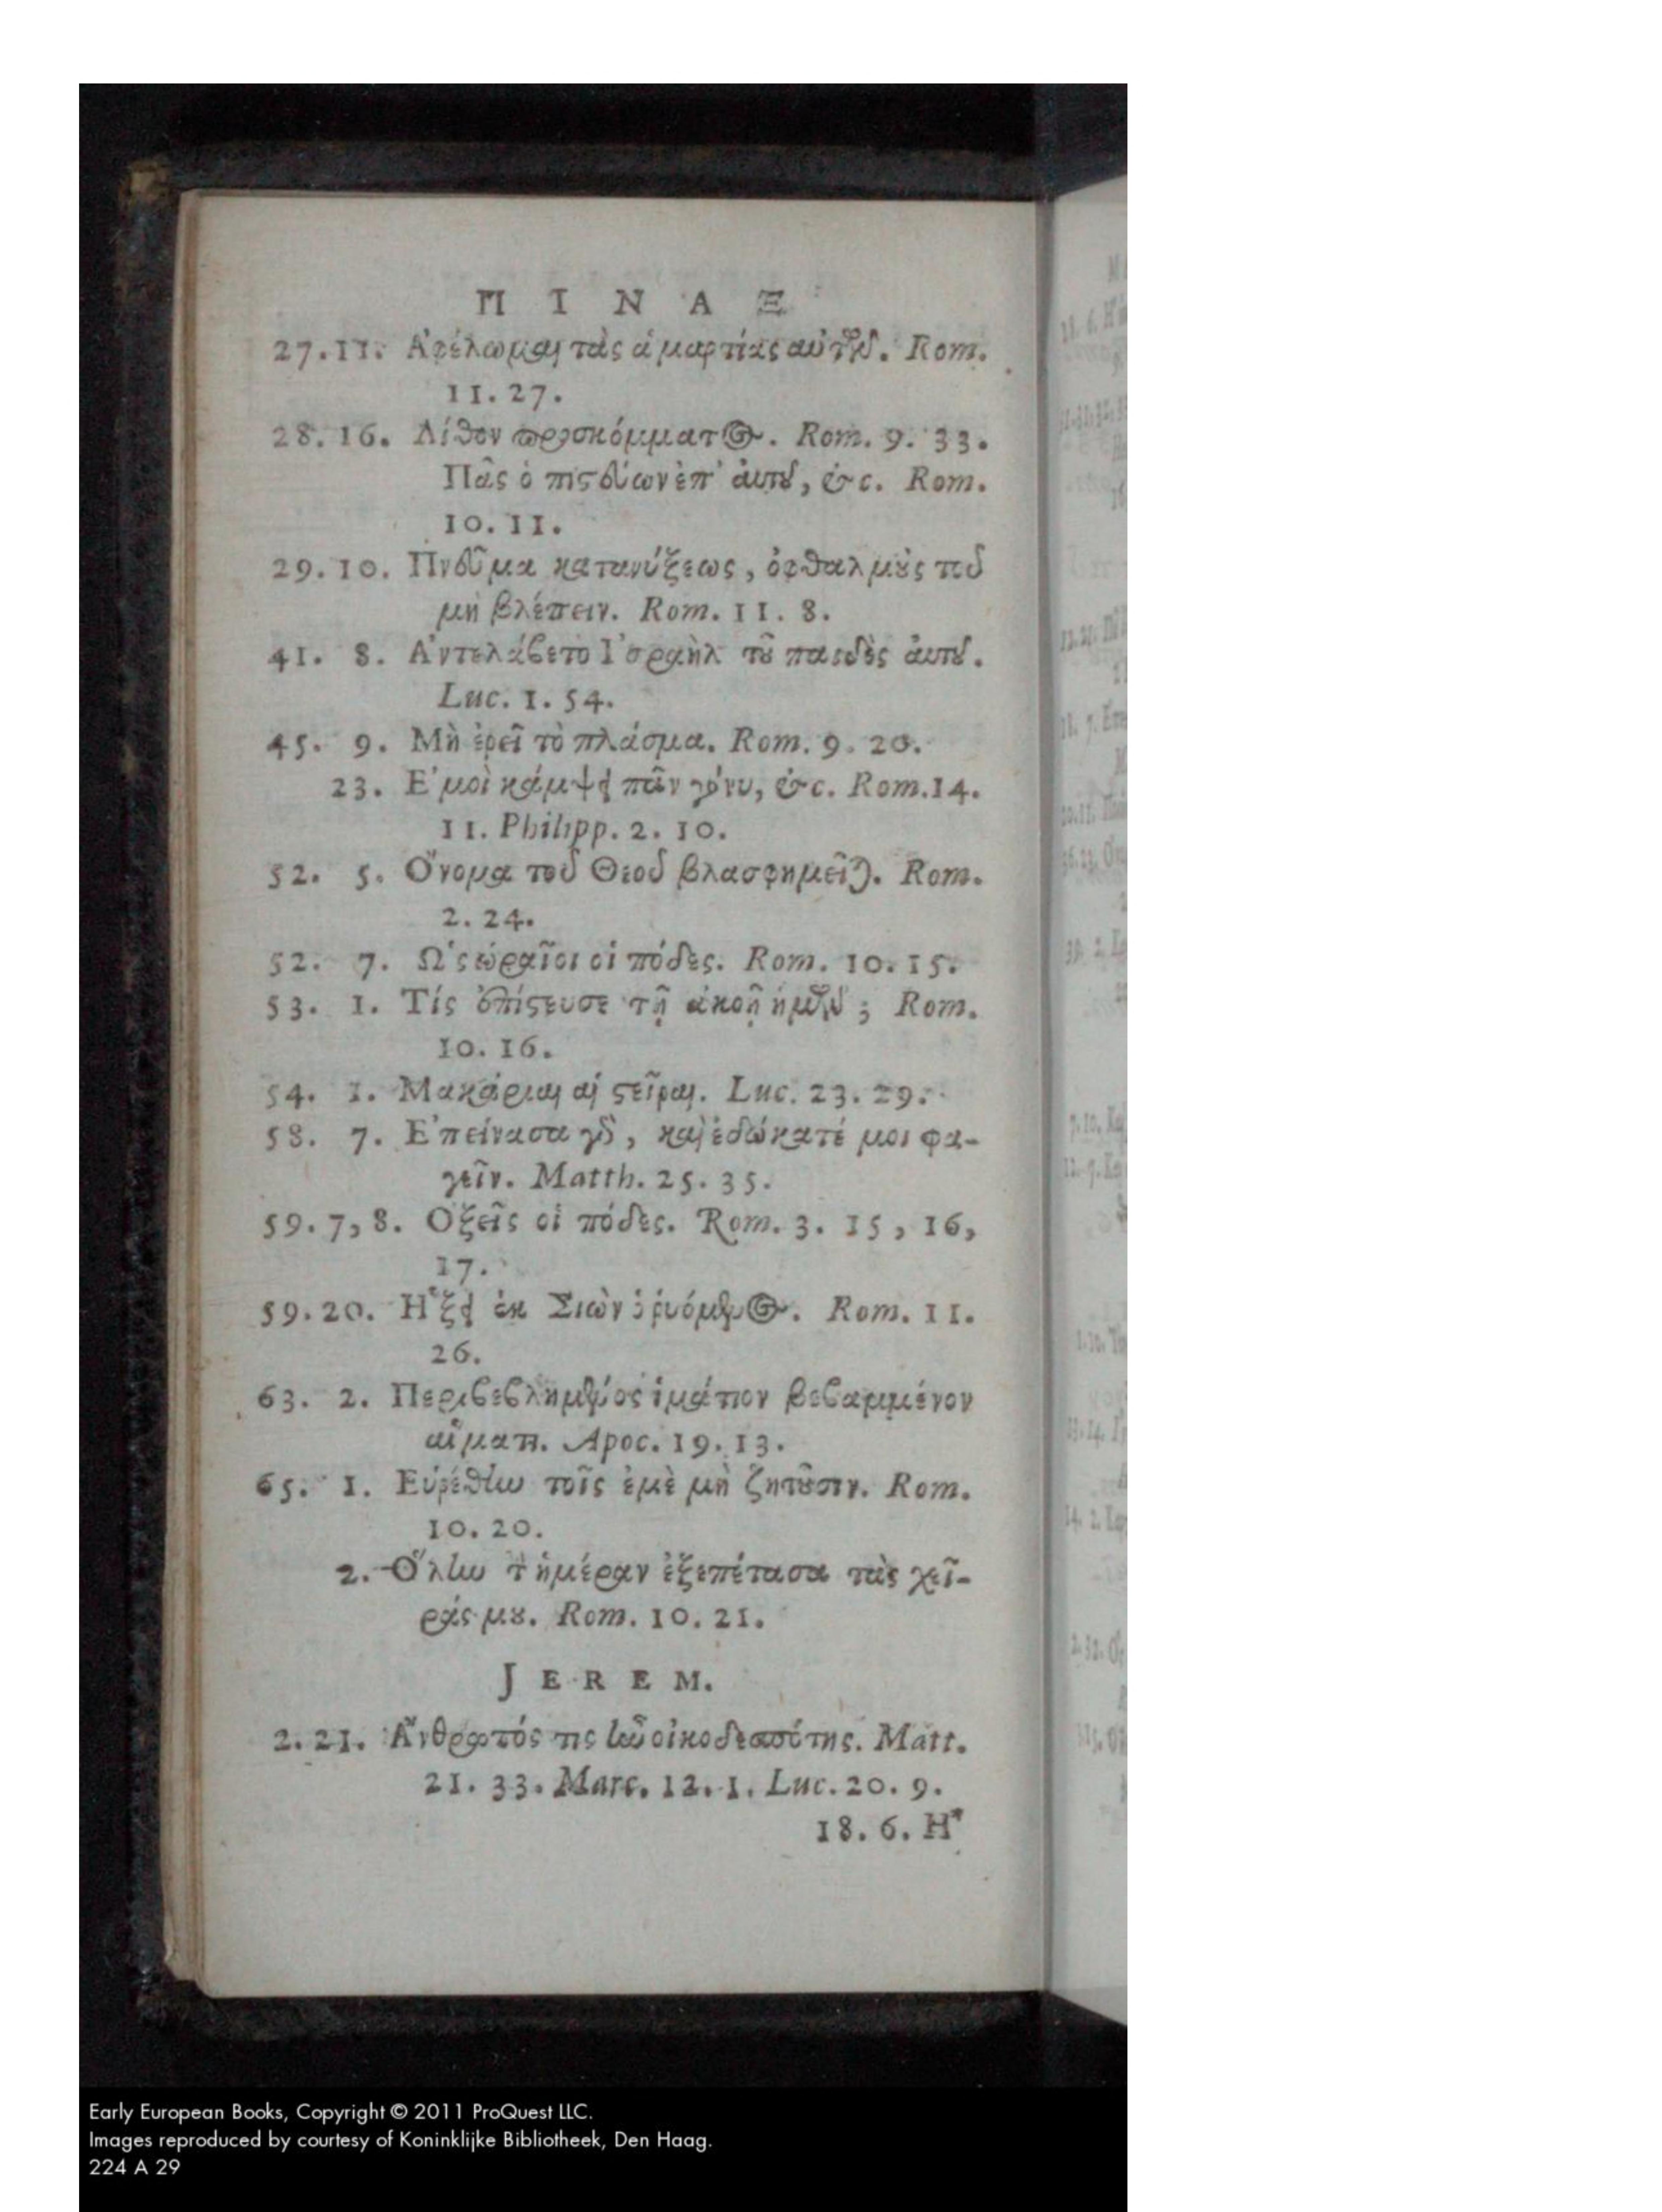 ΠΙΝΑΞ
27.11. Ἀφέλωμαι τὰς ἁμαρτίας αὐτῶν. Rom.
11. 27.
28. 16. Λίθον προσκόμματος. Rom. 9. 33.
Πᾶς ὁ πιστεύων ἐπ' αὐτῷ, &c. Rom.
10. 11.
29. 10. Πνεῦμα κατανύξεως, ὀφθαλμοὺς τοῦ
μὴ βλέπειν. Rom. 11. 8.
41. 8. Ἀντελάβετο Ἰσραὴλ τοῦ παιδὸς αὐτοῦ.
Luc. 1. 54.
45. 9. Μὴ ἐρεῖ τὸ πλάσμα. Rom. 9. 20.
23. Ἐμοὶ κάμψει πᾶν γόνυ, &c. Rom.14.
11. Philipp. 2. 10.
52. 5. Ὄνομα τοῦ Θεοῦ βλασφημεῖται. Rom.
2. 24.
52. 7. Ὡς ὡραῖοι οἱ πόδες. Rom. 10. 15.
53. 1. Τίς ἐπίστευσε τῇ ἀκοῇ ἡμῶν; Rom.
10. 16.
54. 1. Μακάριαι αἱ στεῖραι. Luc. 23. 29.
58. 7. Ἐπείνασα γὰρ, καὶ ἐδώκατέ μοι φα-
γεῖν. Matth. 25. 35.
59. 7, 8. Ὀξεῖς οἱ πόδες. Rom. 3. 15, 16,
17.
59. 20. Ἥξει ἐκ Σιὼν ὁ ῥυόμενος. Rom. 11.
26.
63. 2. Περιβεβλημένος ἱμάτιον βεβαμμένον
αἵματι. Apoc. 19. 13.
65. 1. Εὑρέθην τοῖς ἐμὲ μὴ ζητοῦσιν. Rom.
10. 20.
2. Ὅλην τὴν ἡμέραν ἐξεπέτασα τὰς χεῖ-
ράς μου. Rom. 10. 21.
JEREM.
2. 21. Ἄνθρωπός τις ἦν οἰκοδεσπότης. Matt.
21. 33. Marc. 12. 1. Luc. 20. 9.
18. 6. Ἢ
Early European Books, Copyright © 2011 ProQuest LLC.
Images reproduced by courtesy of Koninklijke Bibliotheek, Den Haag.
224 A 29